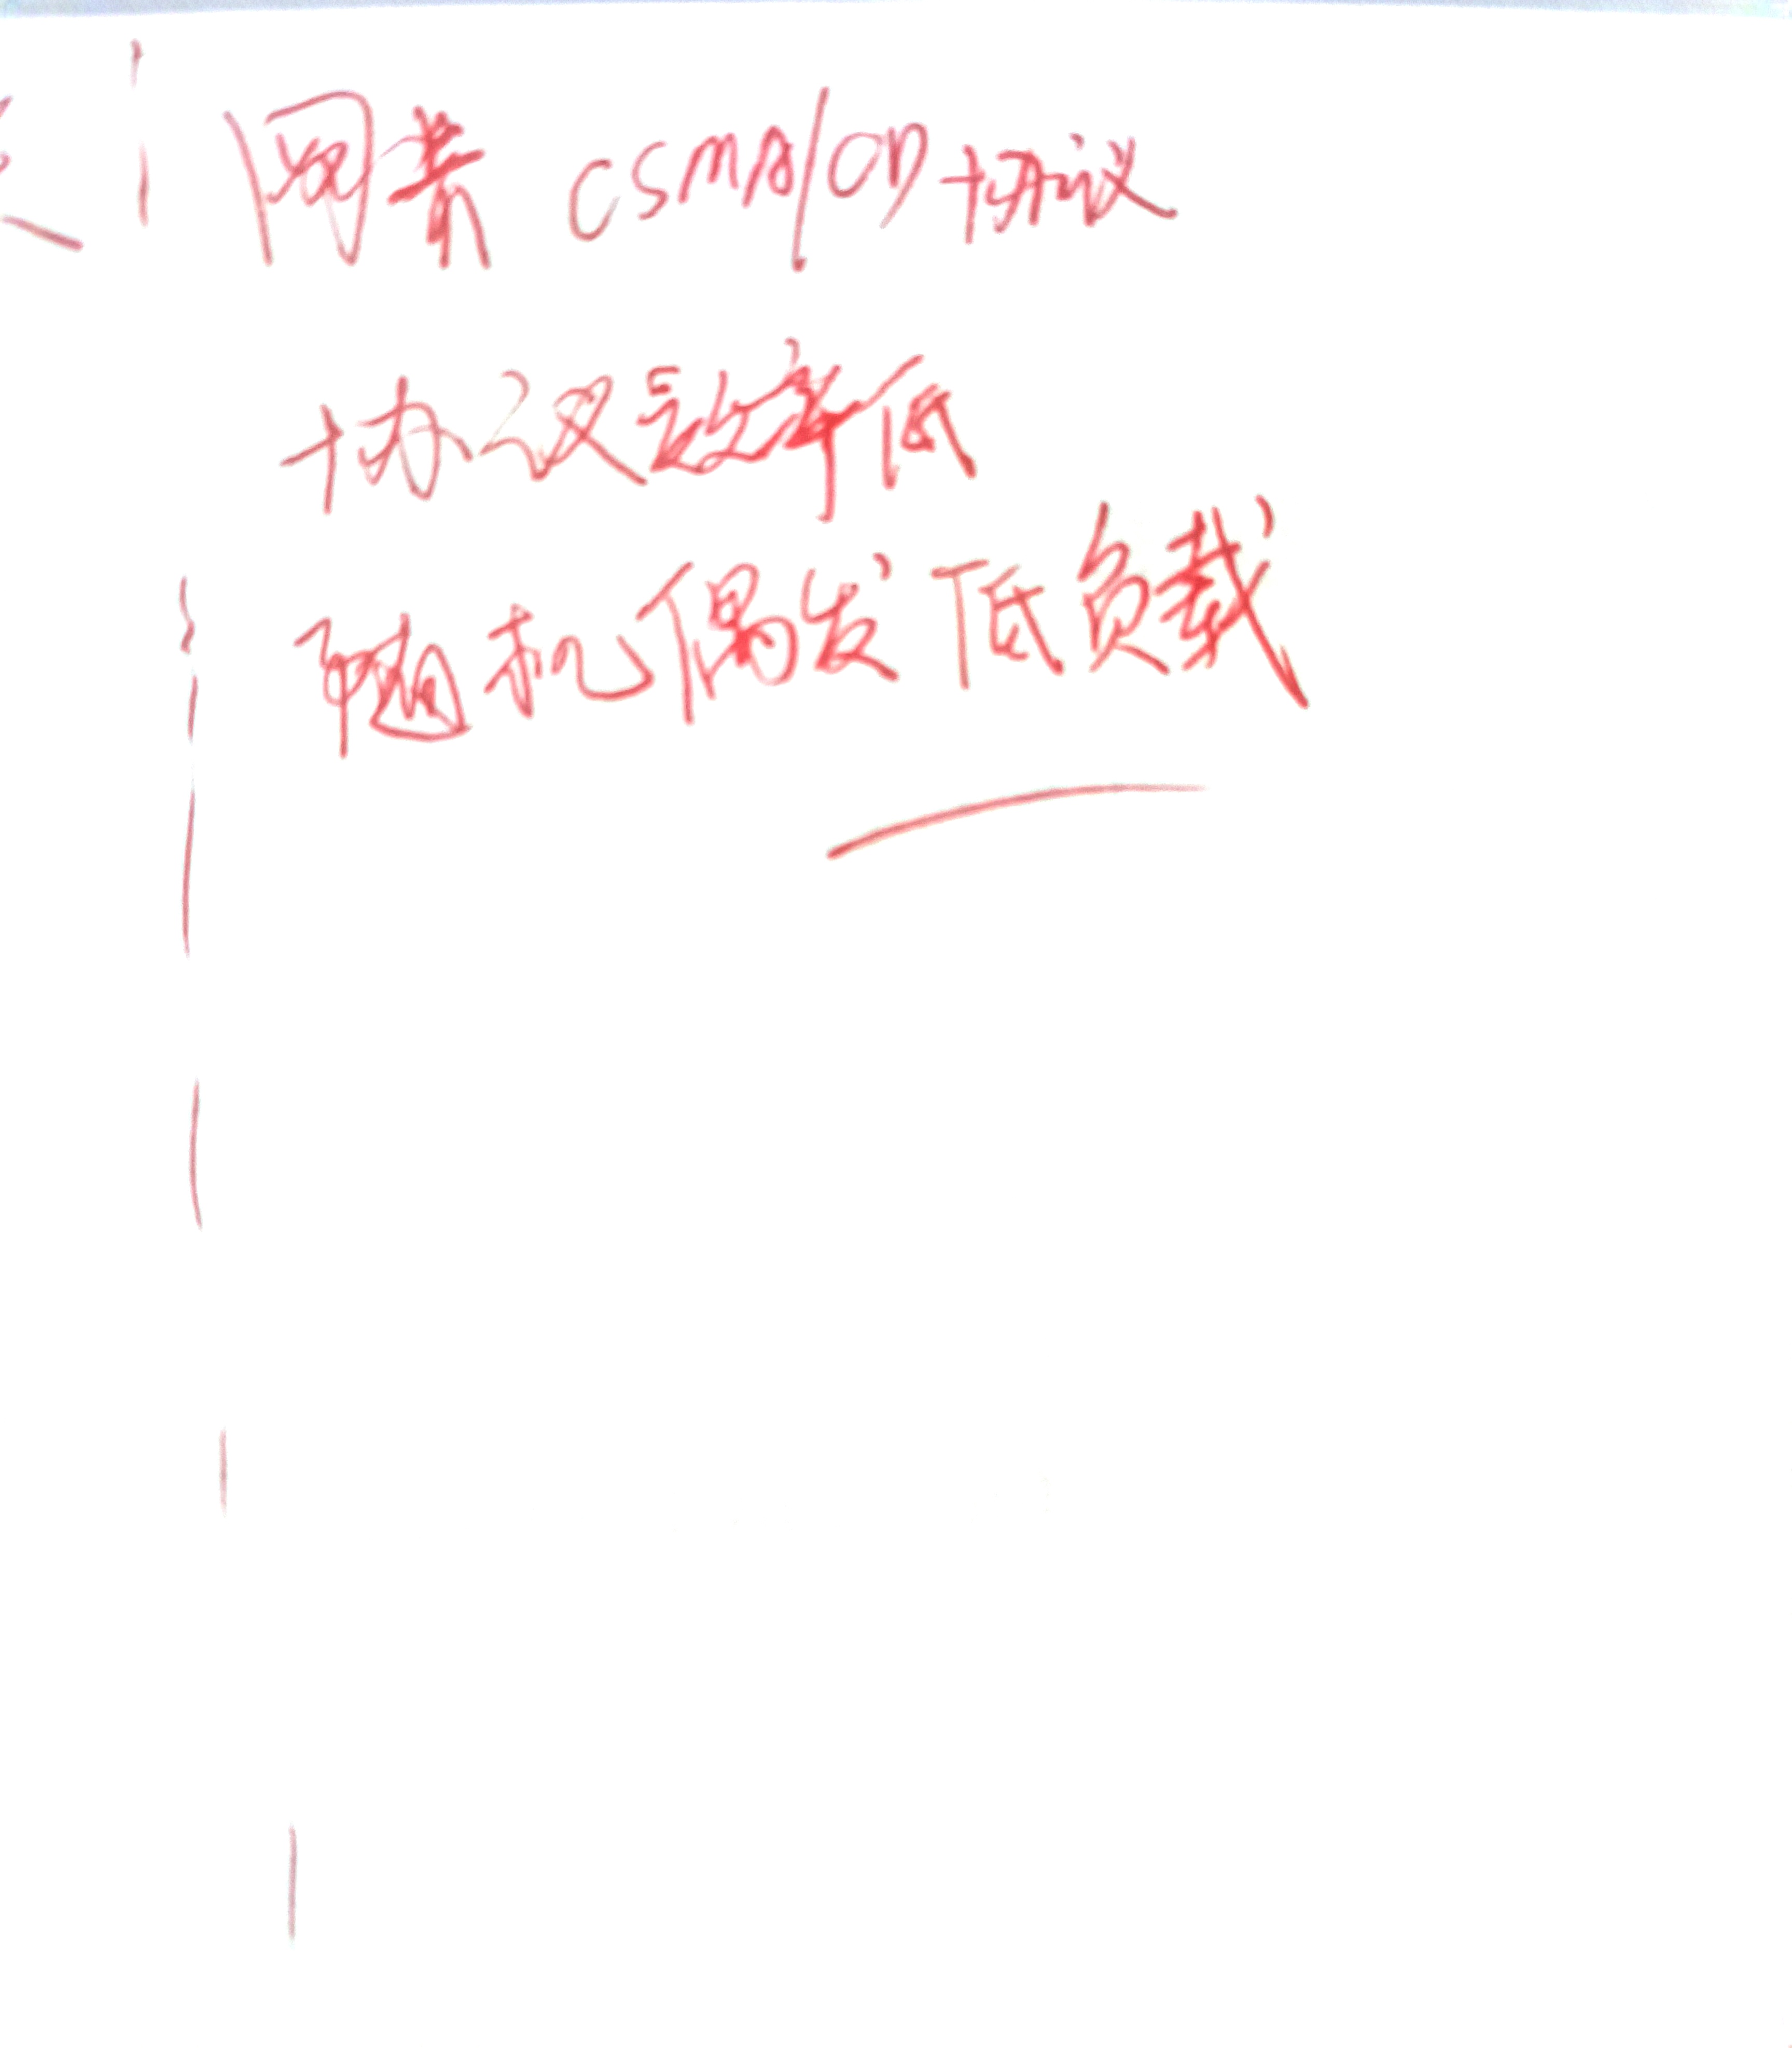 网桥 CSMA/CD 协议
协议效率低
随机偶发 低负载